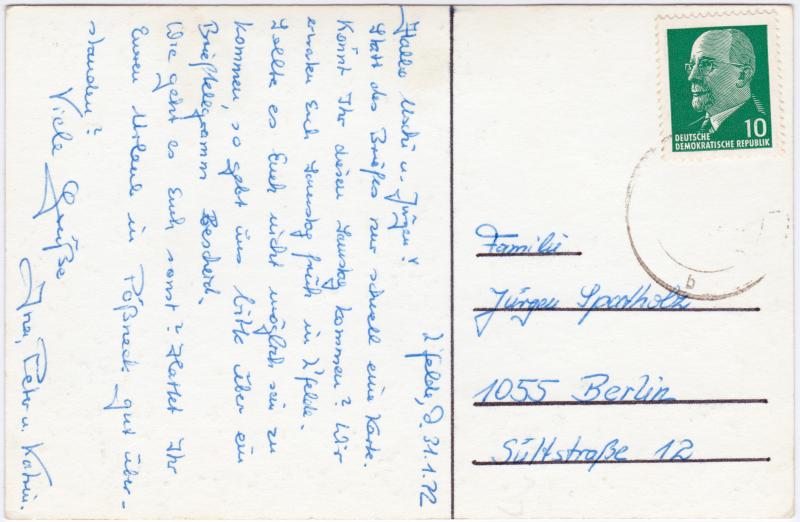 L'felde, d. 31.1.72
Hallo Uschi u. Jürgen!
Statt des Briefes nur schnell eine Karte.
Könnt Ihr diesen Samstag kommen? Wir
erwarten Euch Samstag früh in L'felde.
Sollte es Euch nicht möglich sein zu
kommen, so gebt uns bitte über ein
Brieftelegramm Bescheid.
Wie geht es Euch sonst? Hattet Ihr
Euren Urlaub in Pößneck gut über-
standen?
Viele Grüße
Ina, Peter u. Katrin.
DEUTSCHE 10
DEMOKRATISCHE REPUBLIK
b
Familie
Jürgen Spartholz
1055 Berlin
Sültstraße 12